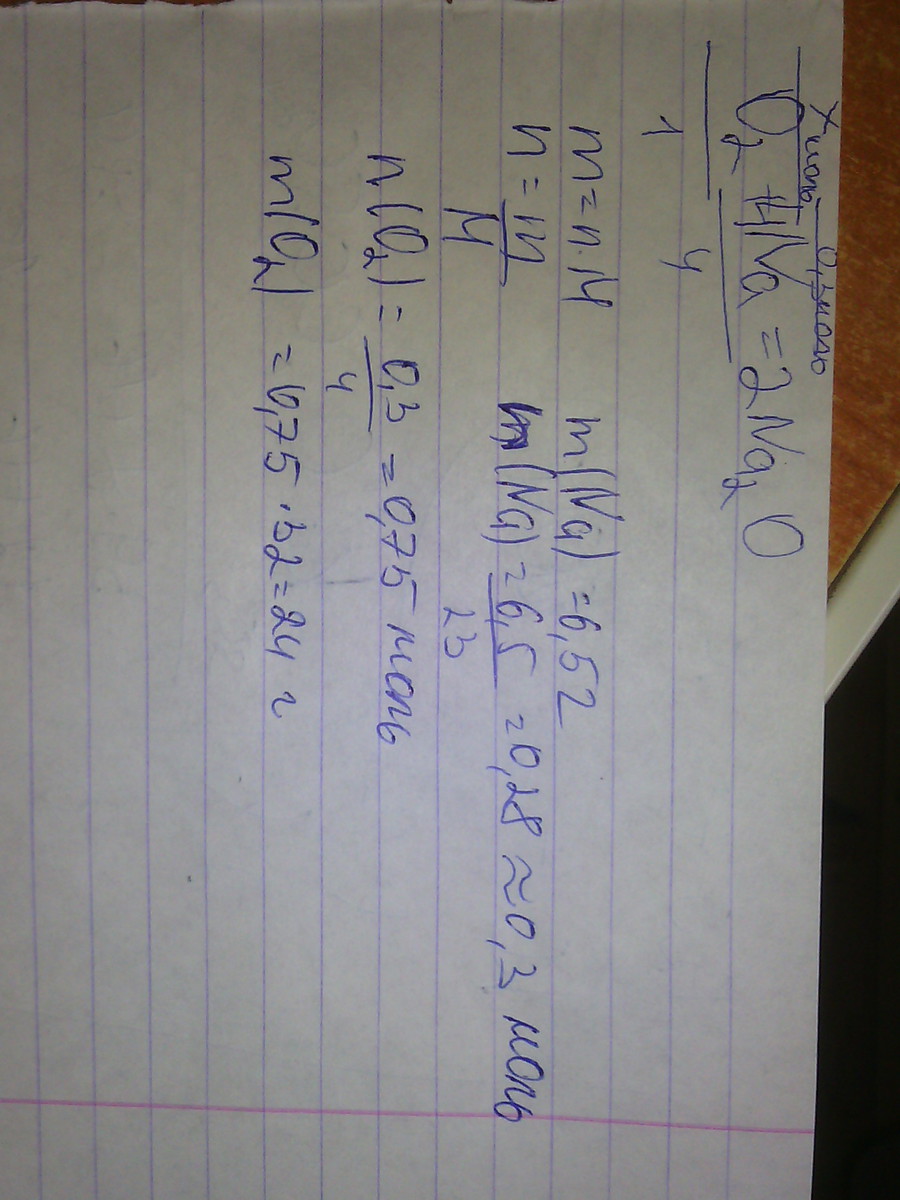 x моль 0,3 моль
O₂ + 4Na = 2Na₂O
1 4
m = n · M m(Na) = 6,5 г
n = m/M m(Na) = 6,5/23 = 0,28 ≈ 0,3 моль
n(O₂) = 0,3/4 = 0,75 моль
m(O₂) = 0,75 · 32 = 24 г